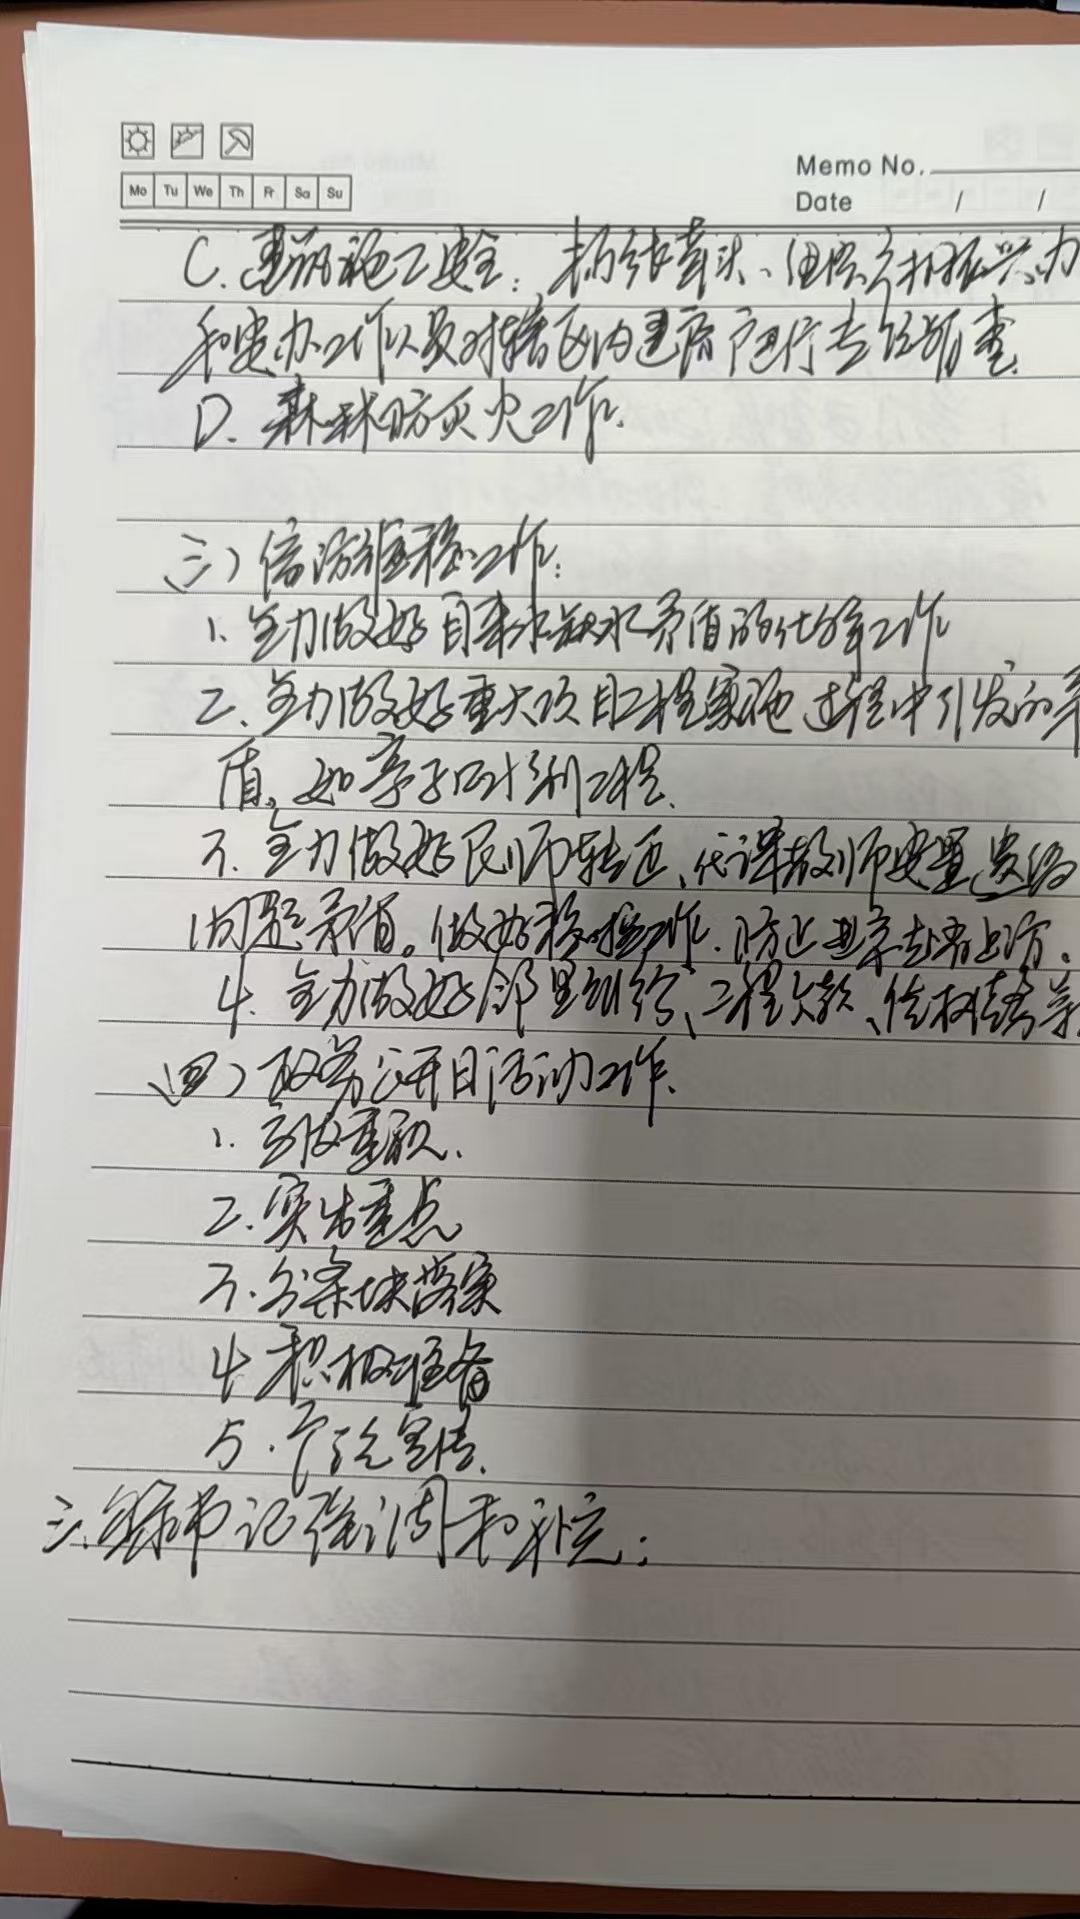 Mo Tu We Th Fr Sa Su
Memo No.
Date / /
C. 建筑施工安全:
安办工作人员对辖区内建房户进行专项排查.
D. 森林防灭火工作.
(三) 信访维稳工作:
1. 全力做好自来水缺水矛盾的化解工作
2. 全力做好重大项目工程实施过程中引发的矛
盾。如亭子口水利工程.
3. 全力做好民师转正、代课教师安置遗留
问题矛盾。做好稳控工作. 防止进京赴省上访.
4. 全力做好邻里纠纷、工程欠款、债权债务等
(四) 政务公开日活动工作.
1. 高度重视.
2. 突出重点
3. 分条块落实
4. 积极准备
5. 宣传.
三. 书记强调和补充: